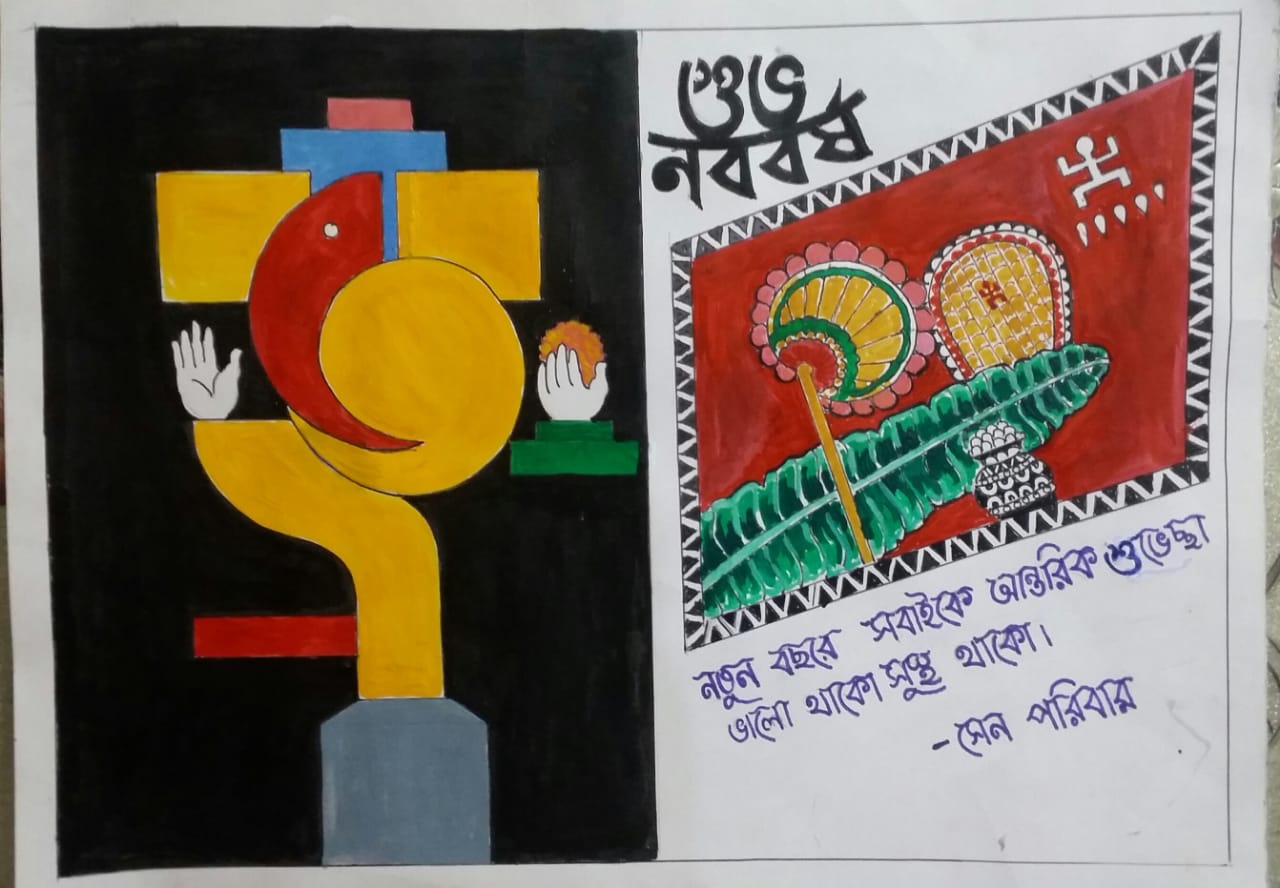 শুভ
নববর্ষ
নতুন বছরে সবাইকে আন্তরিক শুভেচ্ছা
ভালো থাকো সুস্থ থাকো।
- সেন পরিবার